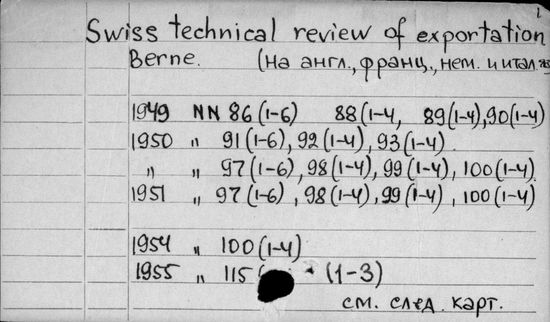 1
Swiss technical review of exportation
Berne. (на англ., франц., нем. и итал яз
1949 NN 86 (1-6) 88 (1-4, 89 (1-4), 90 (1-4)
1950 " 91 (1-6), 92 (1-4), 93 (1-4)
" " 97 (1-6), 98 (1-4), 99 (1-4), 100 (1-4)
1951 " 97 (1-6), 98 (1-4), 99 (1-4), 100 (1-4)
1954 " 100 (1-4)
1955 " 115 (1-3)
см. след. карт.